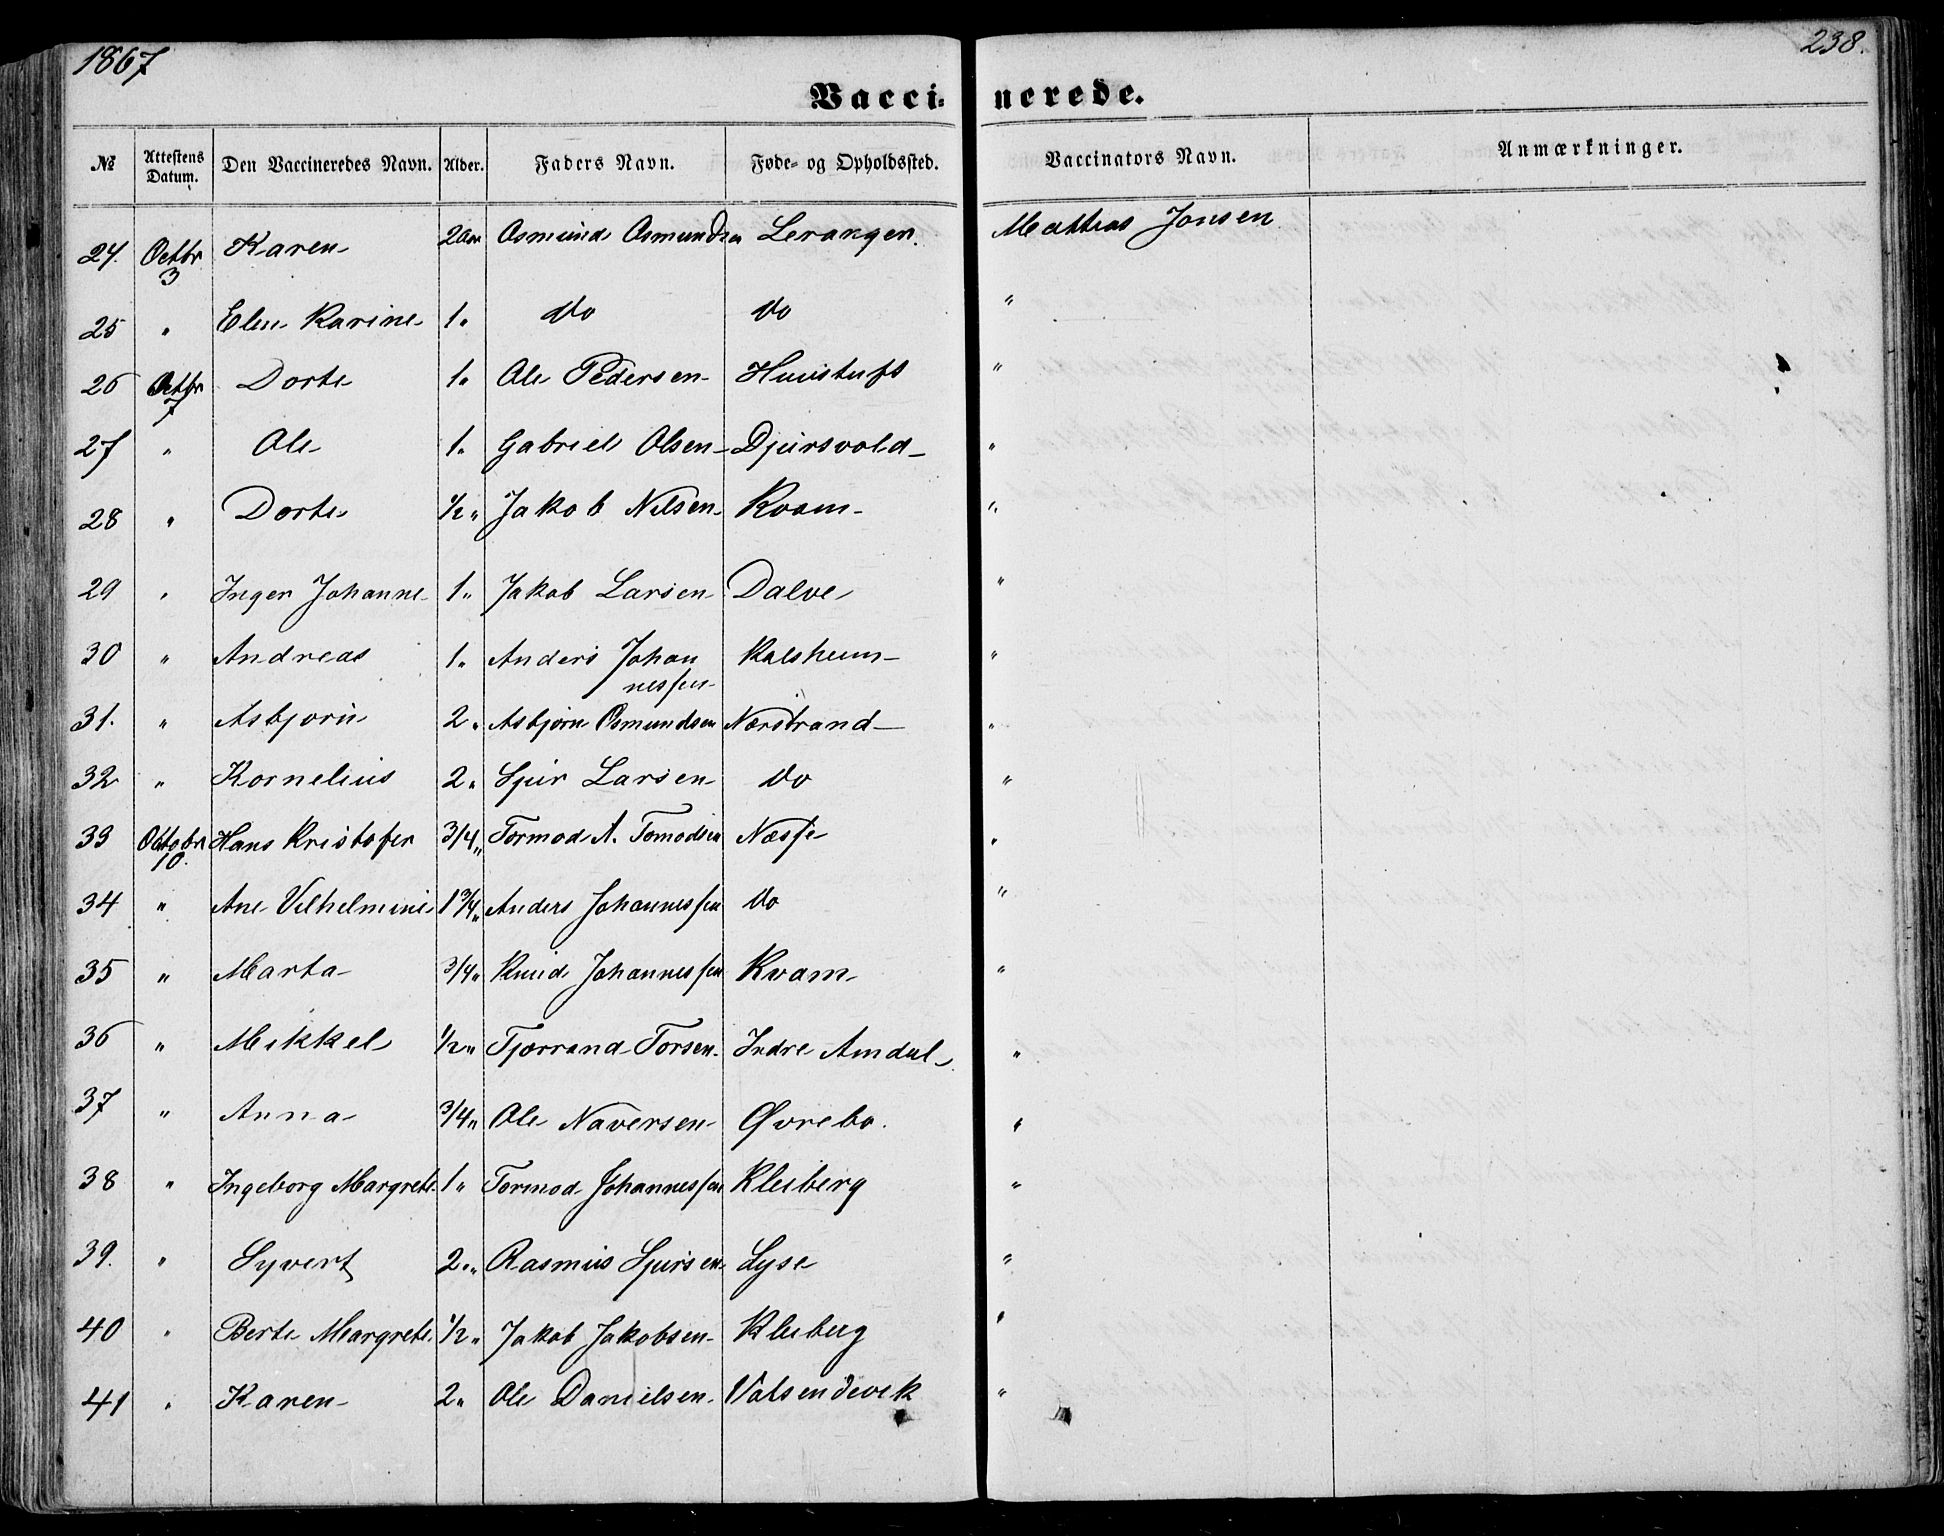 1867
238.
Vaccinerede.
№ Attestens Datum. Den Vaccineredes Navn. Alder. Faders Navn. Føde- og Opholdssted. Vaccinators Navn. Anmærkninger.
24. Octbr 3 Karen 2 Aar Osmund Osmundsen Leranger. Mathias Jonsen
25 " Elen Karine 1 " do do "
26 Octbr 7 Dorte 1 " Ole Pedersen Huustuft "
27 " Ole 1 " Gabriel Olsen Djursvold "
28 " Dorte 1/2 " Jakob Nilsen Kvam "
29 " Inger Johanne 1 " Jakob Larsen Dalve "
30 " Andreas 1 " Anders Johan
nessen Kalsheim "
31. " Asbjørn 2 " Asbjørn Osmundsen Nærstrand "
32 " Kornelius 2 " Sjur Larsen do "
33 Octobr 10. Hans Kristofer 3/4 " Tormod A. Tomodsen Næsse "
34 " Ane Vilhelmine 1 3/4 " Anders Johannessen do "
35 " Marta 3/4 " Knud Johannessen Kvam "
36 " Mikkel 1/2 " Tjærrand Torsen Indre Amdal "
37 " Anna 3/4 " Ole Naversen Øvrebø. "
38 " Ingeborg Margrete 1 " Tormod Johannessen Kleiberg "
39. " Syvert 2 " Rasmus Sjursen Lyse "
40 " Berte Margrete 1/2 " Jakob Jakobsen Kleiberg "
41 " Karen 2 " Ole Danielsen Valsendevik "